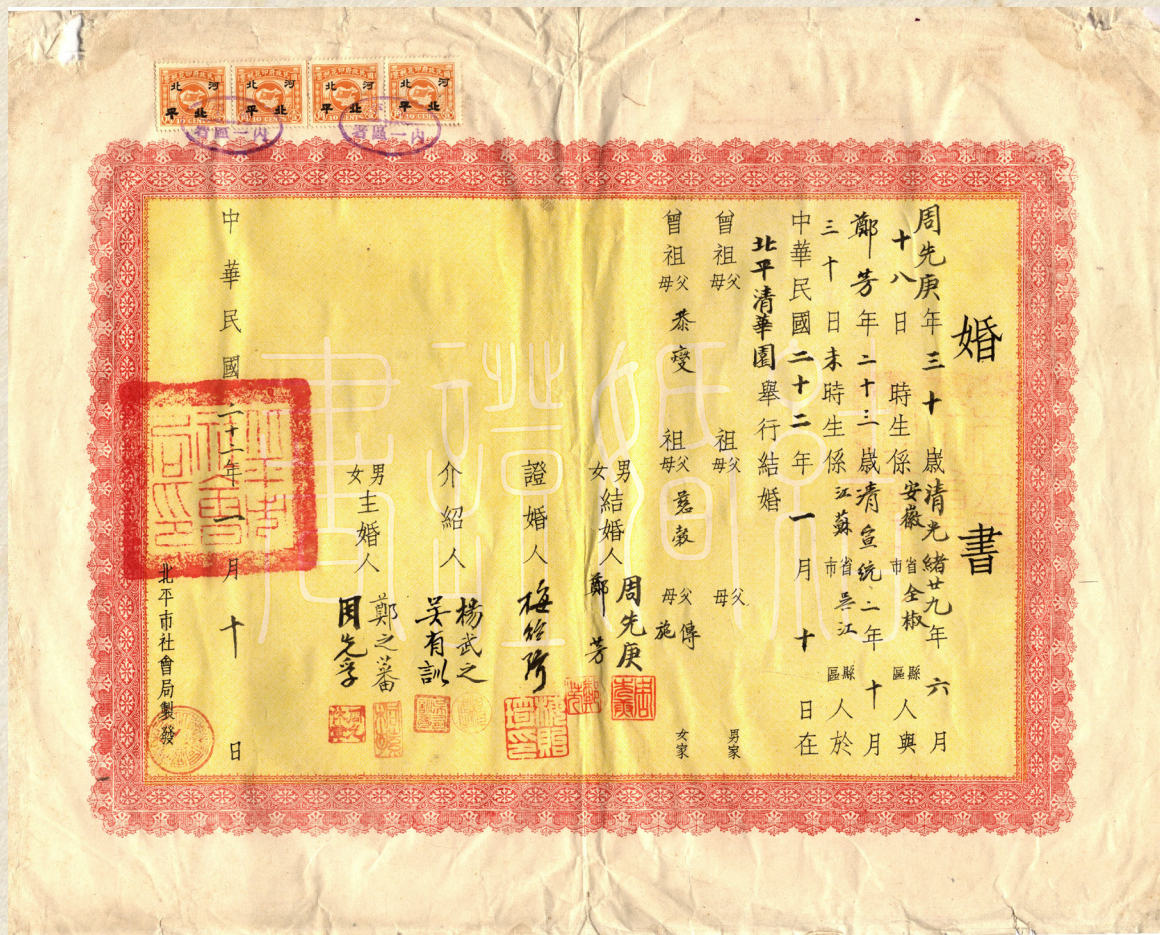 河北 河北 河北 河北
北平 北平 北平 北平
內一區署 內一區署
婚書
周先庚年三十歲清光緒廿九年六月
十八日 時生係安徽省市全椒縣區人與
鄭芳年二十三歲清宣統二年十月
三十日未時生係江蘇省市吳江縣區人於
中華民國二十二年一月十日在
北平清華園舉行結婚
曾祖父母 祖父母 父母 男家
曾祖父母恭燮 祖父母慈穀 父母傳施 女家
男女結婚人 周先庚 鄭芳
證婚人 梅貽琦
介紹人 楊武之 吳有訓
男女主婚人 鄭之蕃 周先孚
中華民國二十二年一月十日
北平市社會局製發
結婚證書